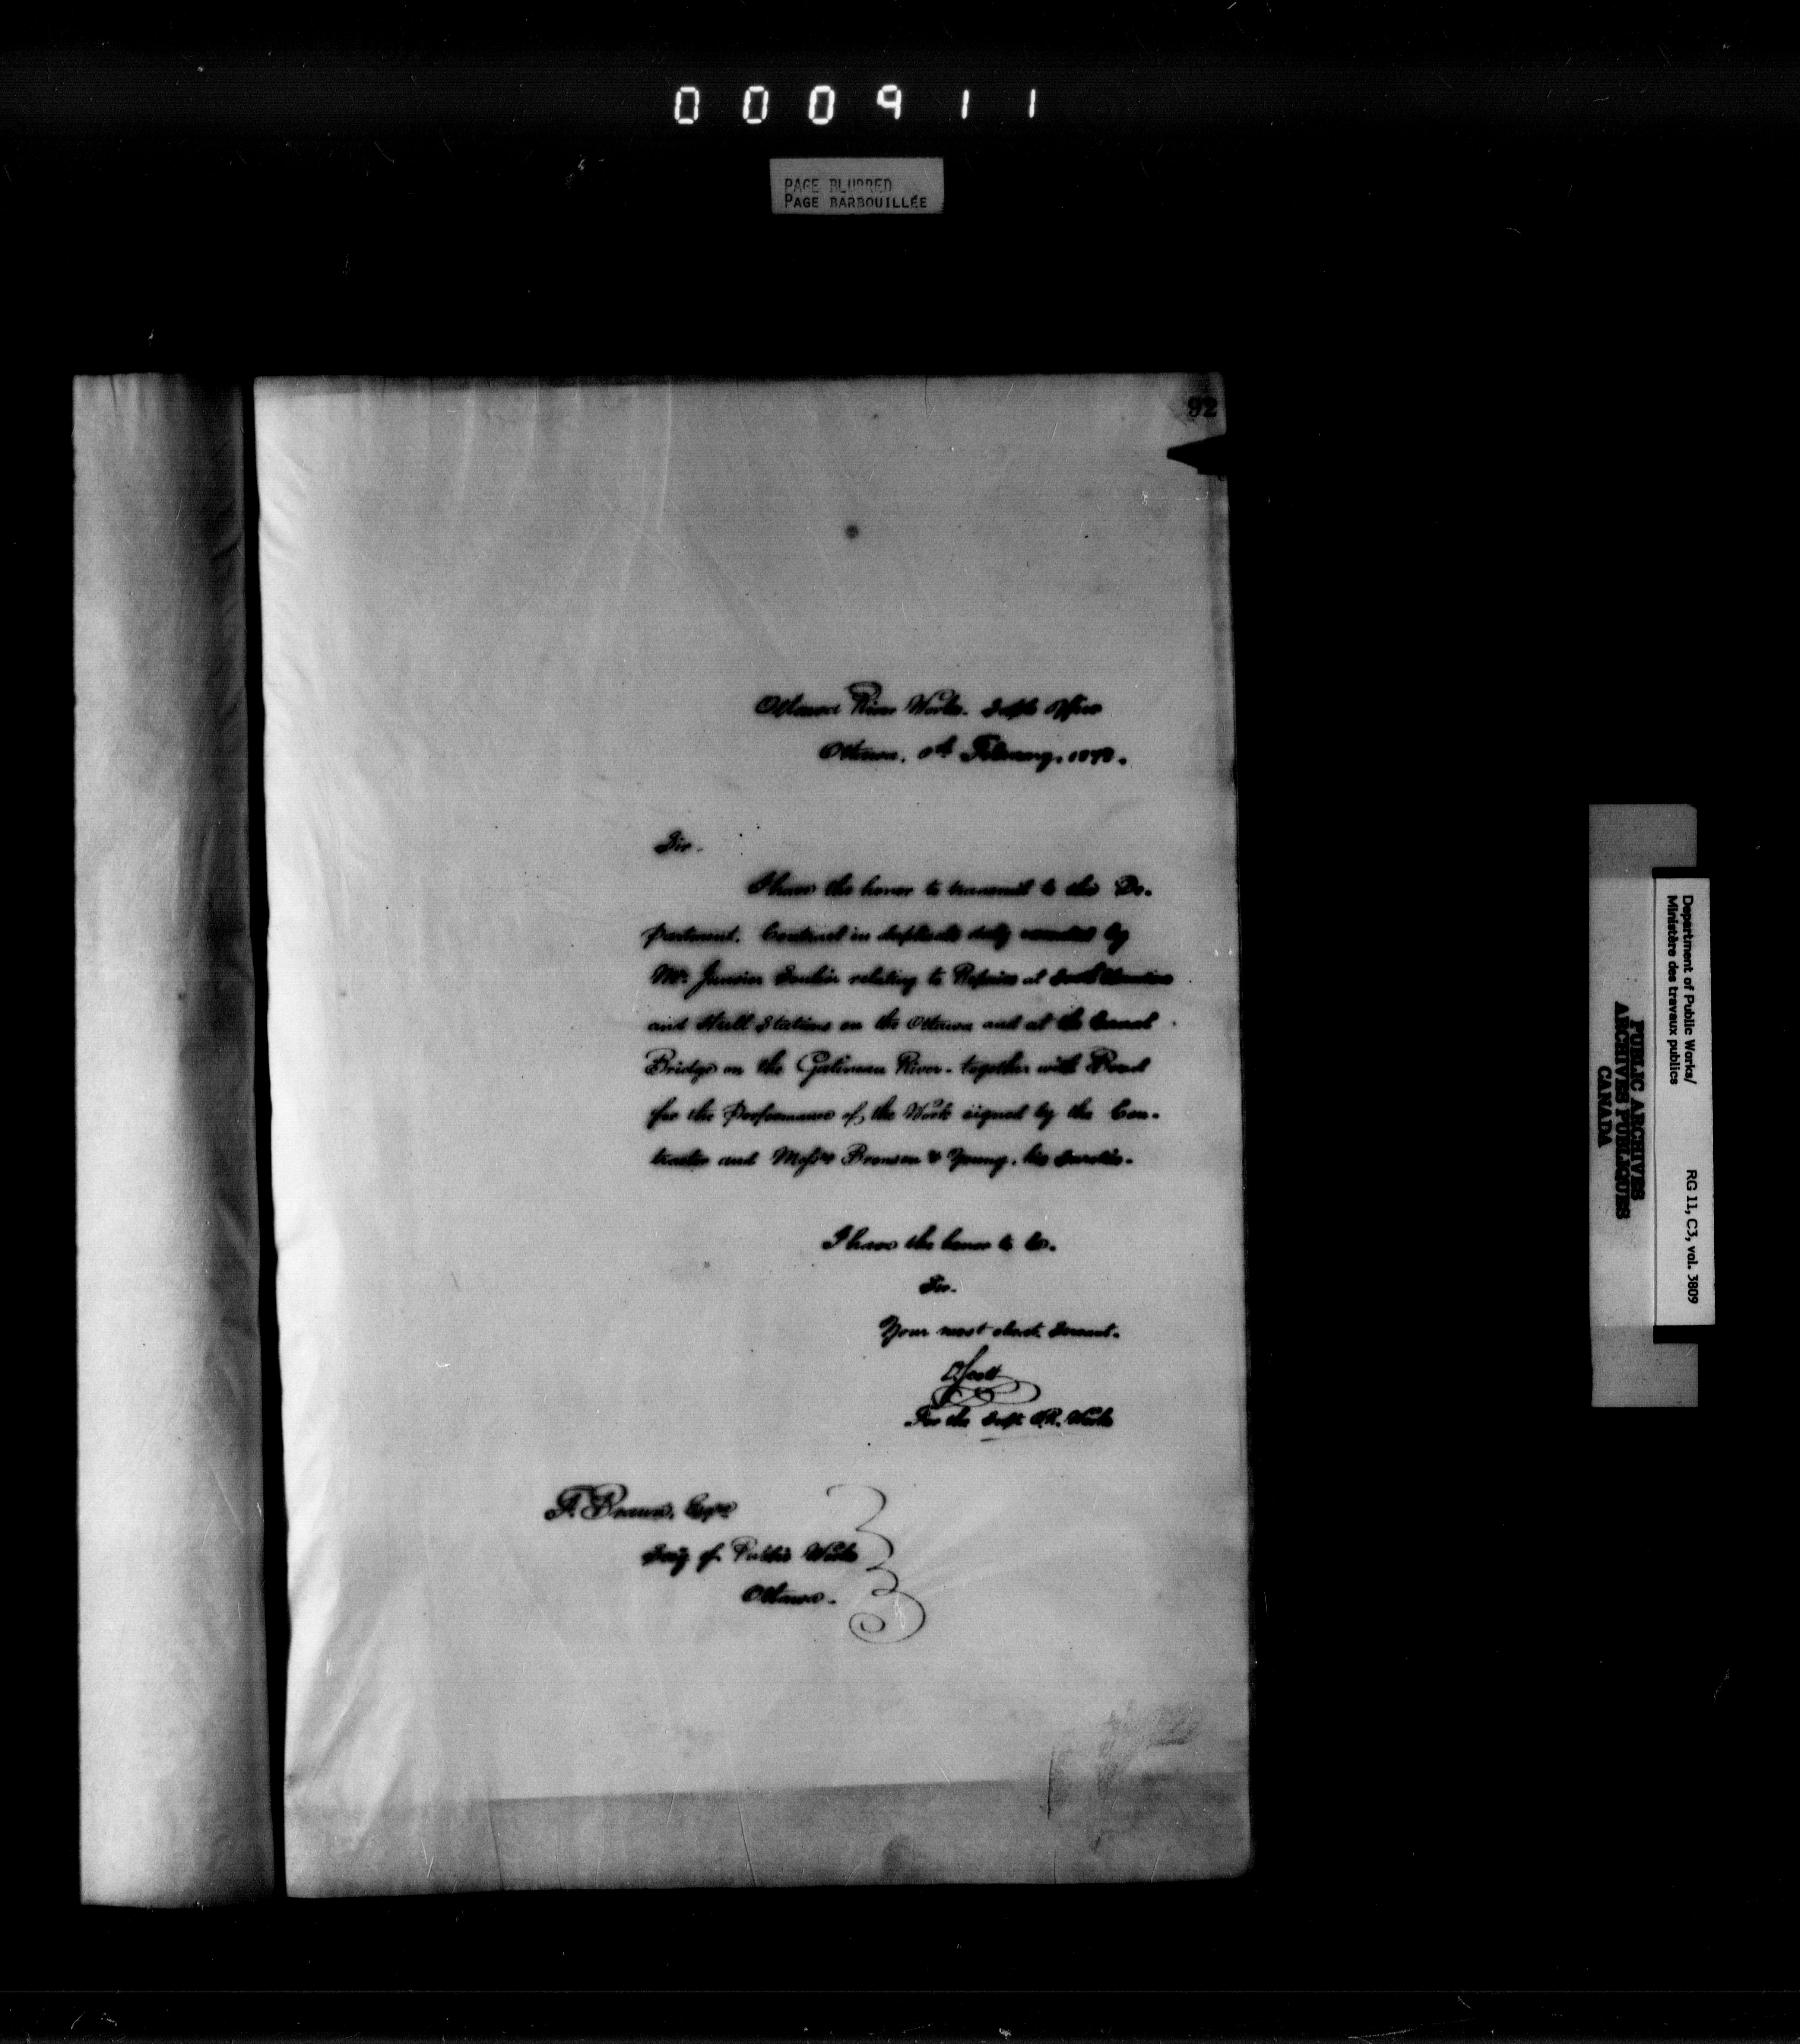 000911
PAGE BLURRED
PAGE BARBOUILLÉE
92
Ottawa River Works. Supts Office
Ottawa, February, 187
Sir.
I have the honor to transmit to the De-
partment. Contract in duplicate duly executed by
Mr. relating to Repairs at
and Hull Stations on the Ottawa and at the
Bridge on the Gatineau River. together with Bond
for the Performance of the Work signed by the Con-
tractor and Messrs Bronson & Young, his sureties.
I have the honor to be.
Sir.
Your most obedt. Servant.
Scott
For the Supt. O.R. Works
F. Braun, Esqre
Secy. of Public Works
Ottawa.
Department of Public Works/
Ministère des travaux publics
RG 11, C3, vol. 3809
PUBLIC ARCHIVES
ARCHIVES PUBLIQUES
CANADA